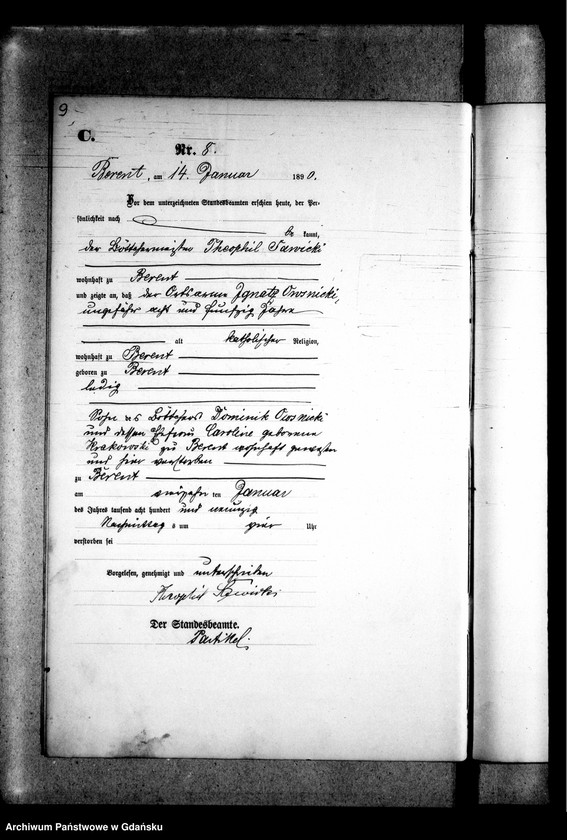 9
C.
Nr. 8.
Berent, am 14. Januar 1890.
Vor dem unterzeichneten Standesbeamten erschien heute, der Per-
sönlichkeit nach
be kannt,
der Böttchermeister Theophil Sawicki
wohnhaft zu Berent
und zeigte an, daß der Ortsarme Ignatz Owsnicki,
ungefähr acht und fünfzig Jahre
alt katholischer Religion,
wohnhaft zu Berent
geboren zu Berent
ledig
Sohn des Böttchers Dominik Owsnicki
und dessen Ehefrau Caroline geborene
Krakowski zu Berent wohnhaft gewesen
und hier verstorben
zu Berent
am ten Januar
des Jahres tausend acht hundert und neunzig
Nachmittag s um Uhr
verstorben sei
Vorgelesen, genehmigt und unterschrieben
Theophil Sawicki
Der Standesbeamte.
Partikel.
Archiwum Państwowe w Gdańsku